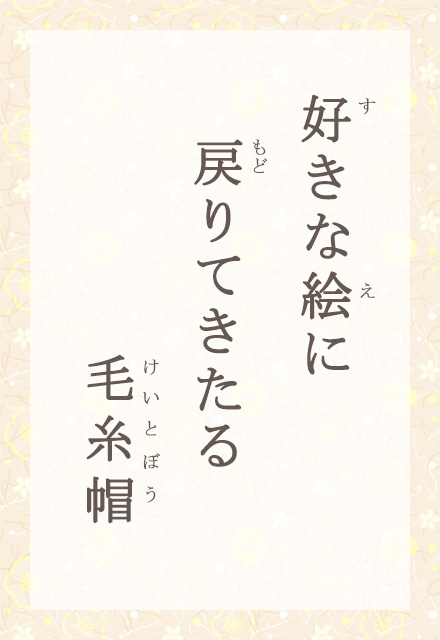 好きな絵に
戻りてきたる
毛糸帽
す
え
もど
けいとぼう